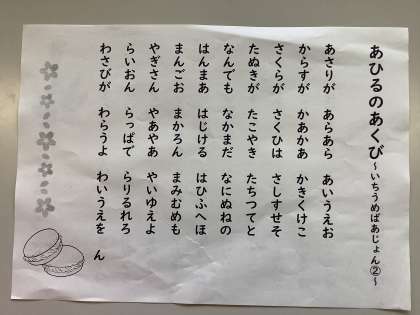 あひるのあくび～いちうめばあじょん②～
あさりが　あらあら　あいうえお
からすが　かあかあ　かきくけこ
さくらが　さくひは　さしすせそ
たぬきが　たこやき　たちつてと
なんでも　なかまだ　なにぬねの
はんまあ　はじける　はひふへほ
まんごお　まかろん　まみむめも
やぎさん　やあやあ　やいゆえよ
らいおん　らっぱで　らりるれろ
わさびが　わらうよ　わいうえを　ん